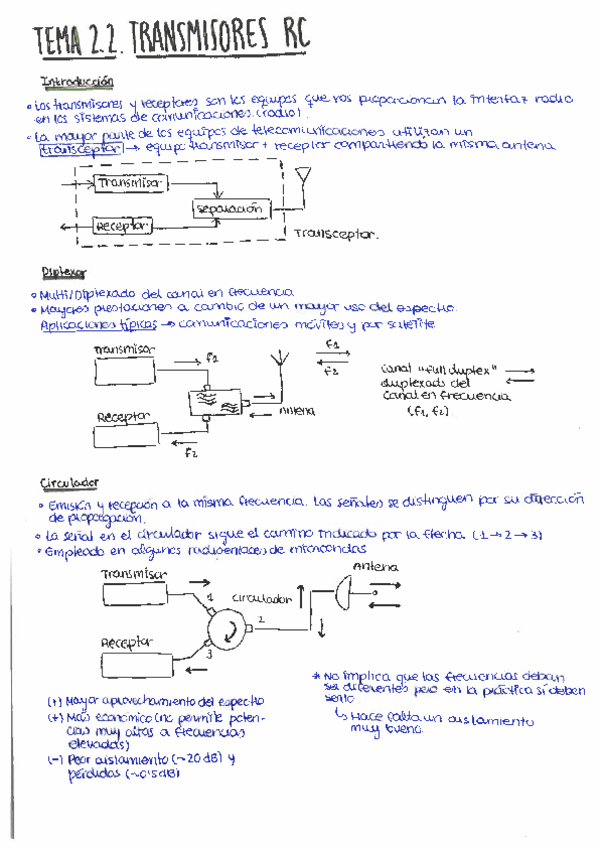 TEMA 2.2. TRANSMISORES RC
Introducción
• Los transmisores y receptores son los equipos que nos proporcionan la interfaz radio
en los sistemas de comunicaciones (radio).
• La mayor parte de los equipos de telecomunicaciones utilizan un
transceptor → equipo transmisor + receptor compartiendo la misma antena
Transmisor
separación
Receptor
Transceptor.
Diplexor
• Multi/Diplexado del canal en frecuencia
• Mayores prestaciones a cambio de un mayor uso del espectro.
Aplicaciones típicas → comunicaciones móviles y por satélite
Transmisor
→ f1
f1
f2
Canal "full duplex"
duplexado del
canal en frecuencia
(f1, f2)
Antena
Receptor
f2
Circulador
• Emisión y recepción a la misma frecuencia. Las señales se distinguen por su dirección
de propagación.
• La señal en el circulador sigue el camino indicado por la flecha. (1→2→3)
• Empleado en algunos radioenlaces de microondas
Transmisor
Antena
1
circulador
2
Receptor
3
* No implica que las frecuencias deban
ser diferentes pero en la práctica sí deben
serlo
↳ Hace falta un aislamiento
muy bueno.
(+) Mayor aprovechamiento del espectro
(+) Más económico (no permite poten-
cias muy altas a frecuencias
elevadas)
(-) Peor aislamiento (~20 dB) y
pérdidas (~0'5dB)